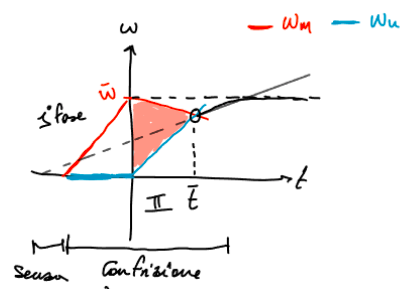 ω
ωm
ωu
ω̄
1ª fase
t
II
t̄
senza
Con frizione